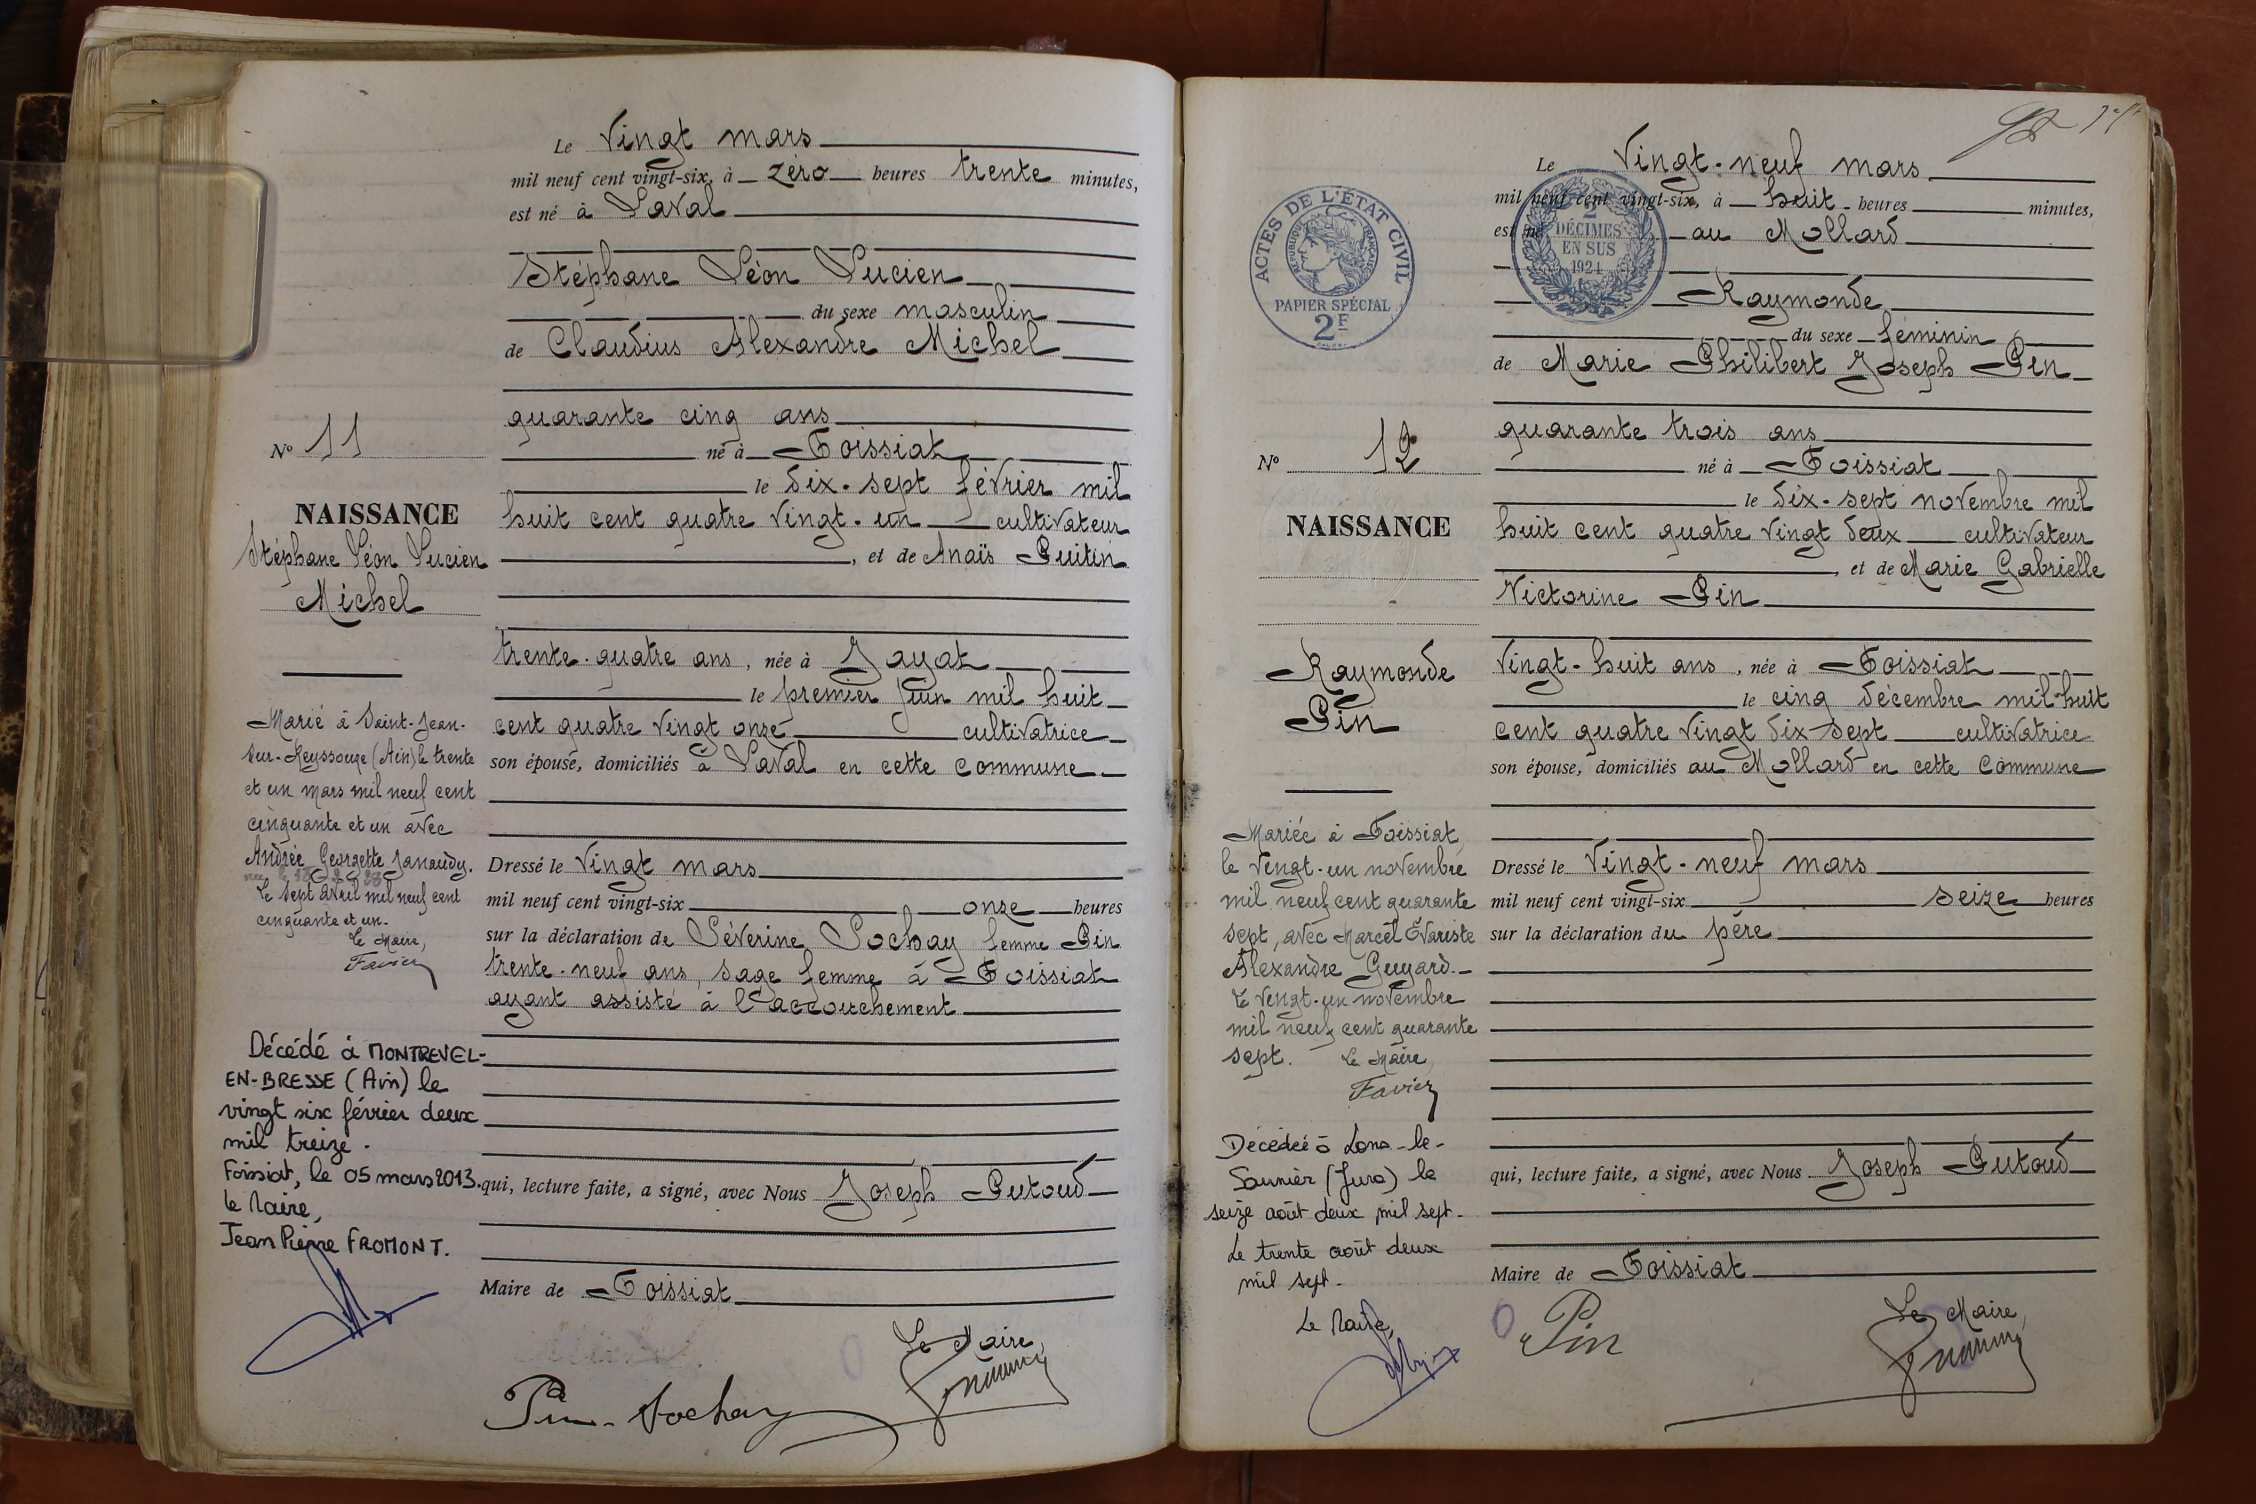 Le Vingt mars
mil neuf cent vingt-six, à zéro heures trente minutes,
est né à Laval
Stéphane Léon Lucien
du sexe masculin
de Claudius Alexandre Michel
quarante cinq ans
né à Foissiat
le dix-sept février mil
huit cent quatre vingt-un cultivateur
, et de Anaïs Guitin
trente-quatre ans, née à Jayat
le premier juin mil huit
cent quatre vingt onze cultivatrice
son épouse, domiciliés à Laval en cette commune
Dressé le vingt mars
mil neuf cent vingt-six onze heures
sur la déclaration de Séverine Sochay femme Pin
trente-neuf ans, sage femme à Foissiat
ayant assisté à l'accouchement
qui, lecture faite, a signé, avec Nous Joseph Putoud
Maire de Foissiat
Le Maire,
Pin-Sochay
No 11
NAISSANCE
Stéphane Léon Lucien
Michel
Marié à Saint-Jean-
sur-Reyssouze (Ain) le trente
et un mars mil neuf cent
cinquante et un avec
Andrée Georgette Janaudy.
Le sept avril mil neuf cent
cinquante et un.
Le Maire,
Favier
Décédé à MONTREVEL-
EN-BRESSE (Ain) le
vingt six février deux
mil treize.
Foissiat, le 05 mars 2013.
Le Maire,
Jean Pierre FROMONT.
Le Vingt-neuf mars
mil neuf cent vingt-six, à huit heures minutes,
est né au Mollard
Raymonde
du sexe féminin
de Marie Philibert Joseph Pin
quarante trois ans
né à Foissiat
le dix-sept novembre mil
huit cent quatre vingt deux cultivateur
, et de Marie Gabrielle
Victorine Pin
vingt-huit ans, née à Foissiat
le cinq décembre mil huit
cent quatre vingt dix-sept cultivatrice
son épouse, domiciliés au Mollard en cette commune
Dressé le vingt-neuf mars
mil neuf cent vingt-six seize heures
sur la déclaration du père
qui, lecture faite, a signé, avec Nous Joseph Putoud
Maire de Foissiat
Le Maire,
Pin
ACTES DE L'ÉTAT CIVIL
RÉPUBLIQUE FRANÇAISE
PAPIER SPÉCIAL
2F
2
DÉCIMES
EN SUS
1924
No 12
NAISSANCE
Raymonde
Pin
Mariée à Foissiat
le vingt-un novembre
mil neuf cent quarante
sept, avec Marcel Évariste
Alexandre Guyard.-
Le vingt-un novembre
mil neuf cent quarante
sept. Le Maire,
Favier
Décédée à Lons-le-
Saunier (Jura) le
seize août deux mil sept.
Le trente août deux
mil sept.
Le Maire,